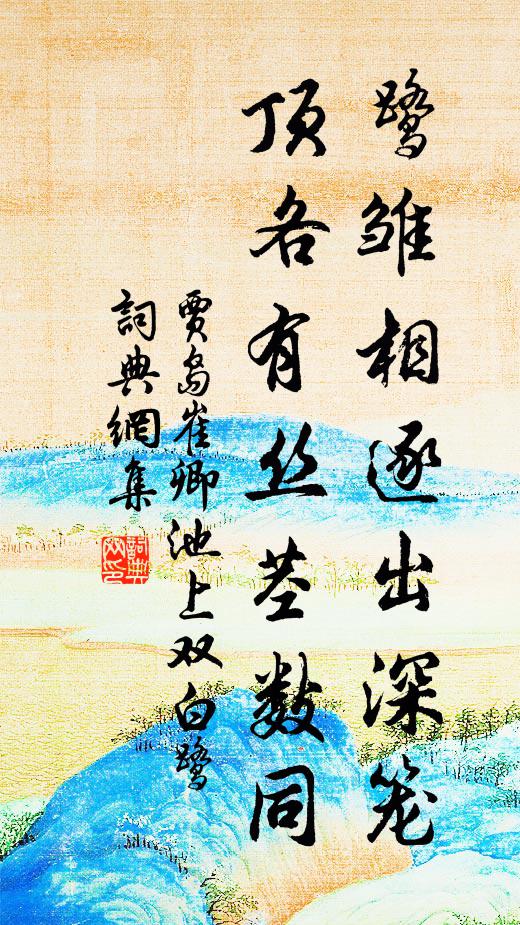 鹭雏相逐出深笼
顶各有丝茎数同
贾岛崔卿池上双白鹭
詞典網集